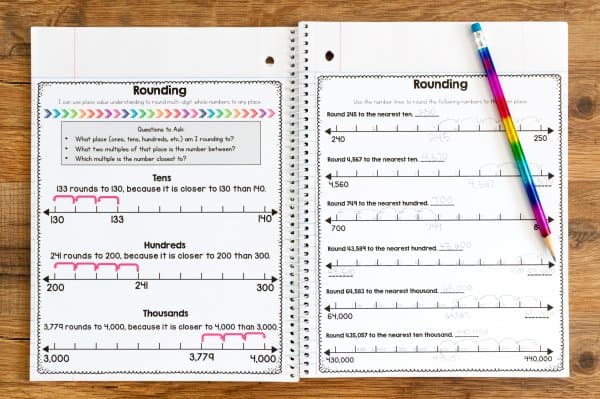 Rounding
I can use place value understanding to round multi-digit whole numbers to any place.
Questions to Ask:
• What place (ones, tens, hundreds, etc.) am I rounding to?
• What two multiples of that place is the number between?
• Which multiple is the number closest to?
Tens
133 rounds to 130, because it is closer to 130 than 140.
130 133 140
Hundreds
241 rounds to 200, because it is closer to 200 than 300.
200 241 300
Thousands
3,779 rounds to 4,000, because it is closer to 4,000 than 3,000.
3,000 3,779 4,000
Rounding
Use the number lines to round the following numbers to the place.
Round 245 to the nearest ten.
240 250
Round 4,567 to the nearest ten. 4,570
4,560 4,567
Round 749 to the nearest hundred. 700
700 8
Round 43,589 to the nearest hundred.
Round 64,583 to the nearest thousand.
64,000
Round 435,057 to the nearest ten thousand.
430,000 440,000